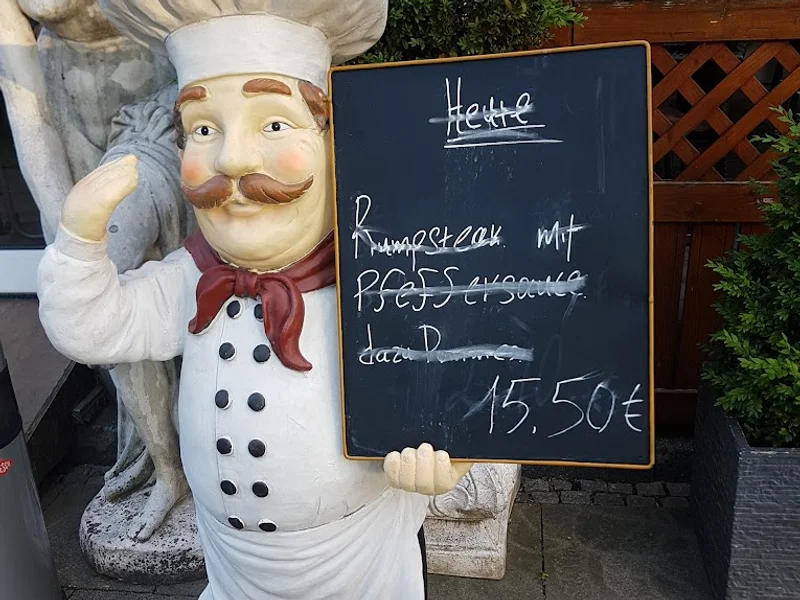 Heute
Rumpsteak mit
Pfeffersauce
dazu Pommes
15.50€